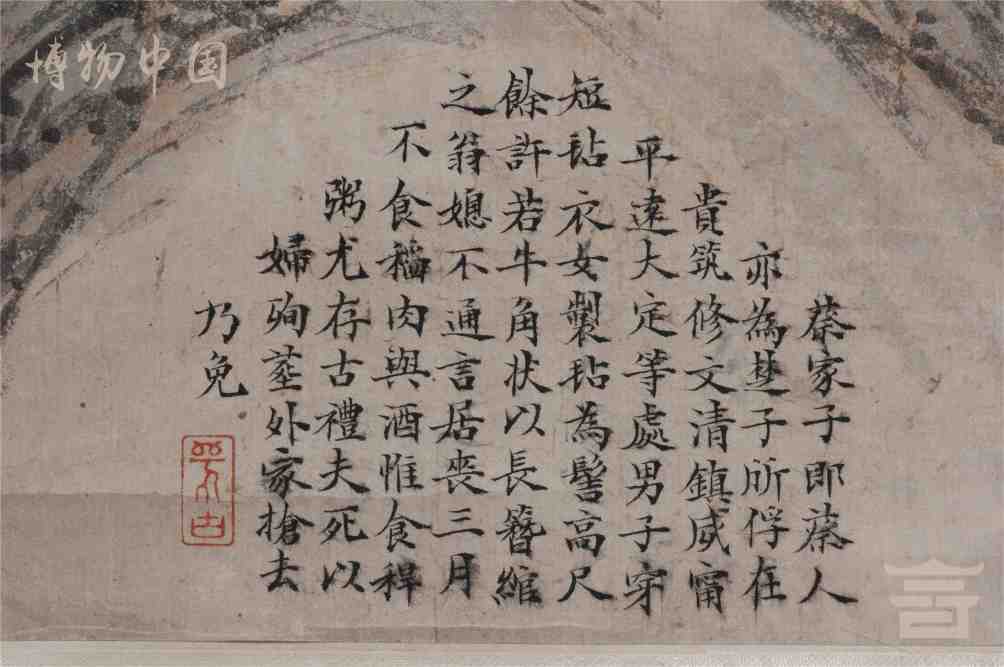 博物中国
蔡家子即蔡人
亦為楚子所俘在
貴筑修文清鎮咸甯
平遠大定等處男子穿
短毡衣女製毡為髻高尺
餘許若牛角状以長簪綰
之翁媳不通言居喪三月
不食稻肉與酒惟食稗
粥尤存古禮夫死以
婦殉塟外家搶去
乃免